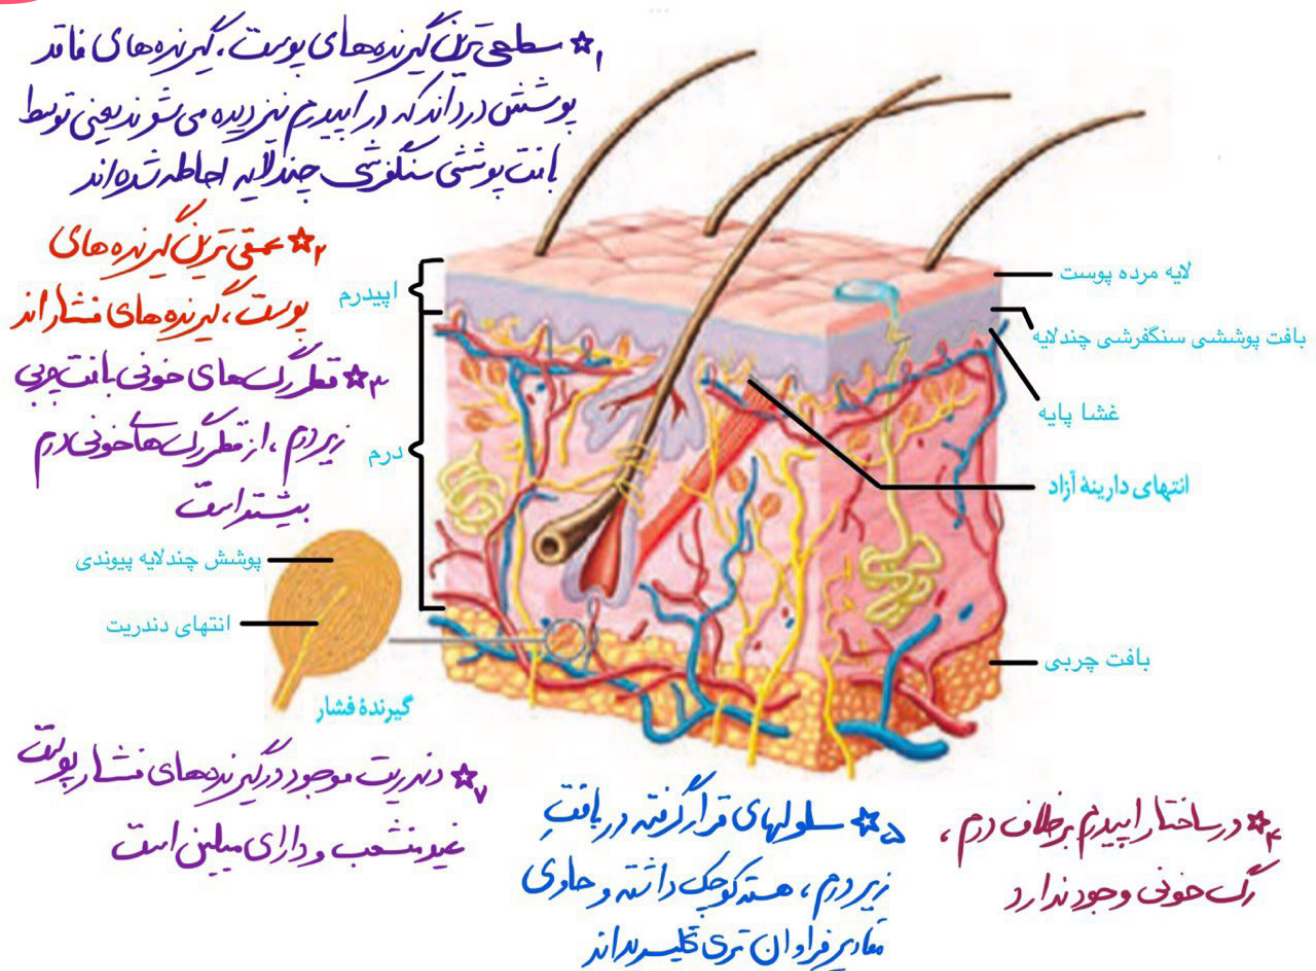 ☆۱ سطحی‌ترین گیرنده‌های پوست، گیرنده‌های فاقد
پوشش درد‌اند که در اپیدرم نیز دیده می‌شوند یعنی توسط
بافت پوششی سنگفرشی چندلایه احاطه شده‌اند
☆۲ عمقی‌ترین گیرنده‌های
پوست، گیرنده‌های فشاراند
☆۳ قطر رگ‌های خونی بافت چربی
زیر درم، از قطر رگ‌های خونی درم
بیشتر است
اپیدرم
درم
لایه مرده پوست
بافت پوششی سنگفرشی چندلایه
غشا پایه
انتهای دارینهٔ آزاد
بافت چربی
پوشش چندلایه پیوندی
انتهای دندریت
گیرندهٔ فشار
☆۷ دندریت موجود در گیرنده‌های فشار پوست
غیرمنشعب و دارای میلین است
☆۵ سلولهای قرار گرفته در بافت
زیر درم، هسته کوچک داشته و حاوی
مقادیر فراوان تری گلیسیریداند
☆۴ در ساختار اپیدرم برخلاف درم،
رگ خونی وجود ندارد